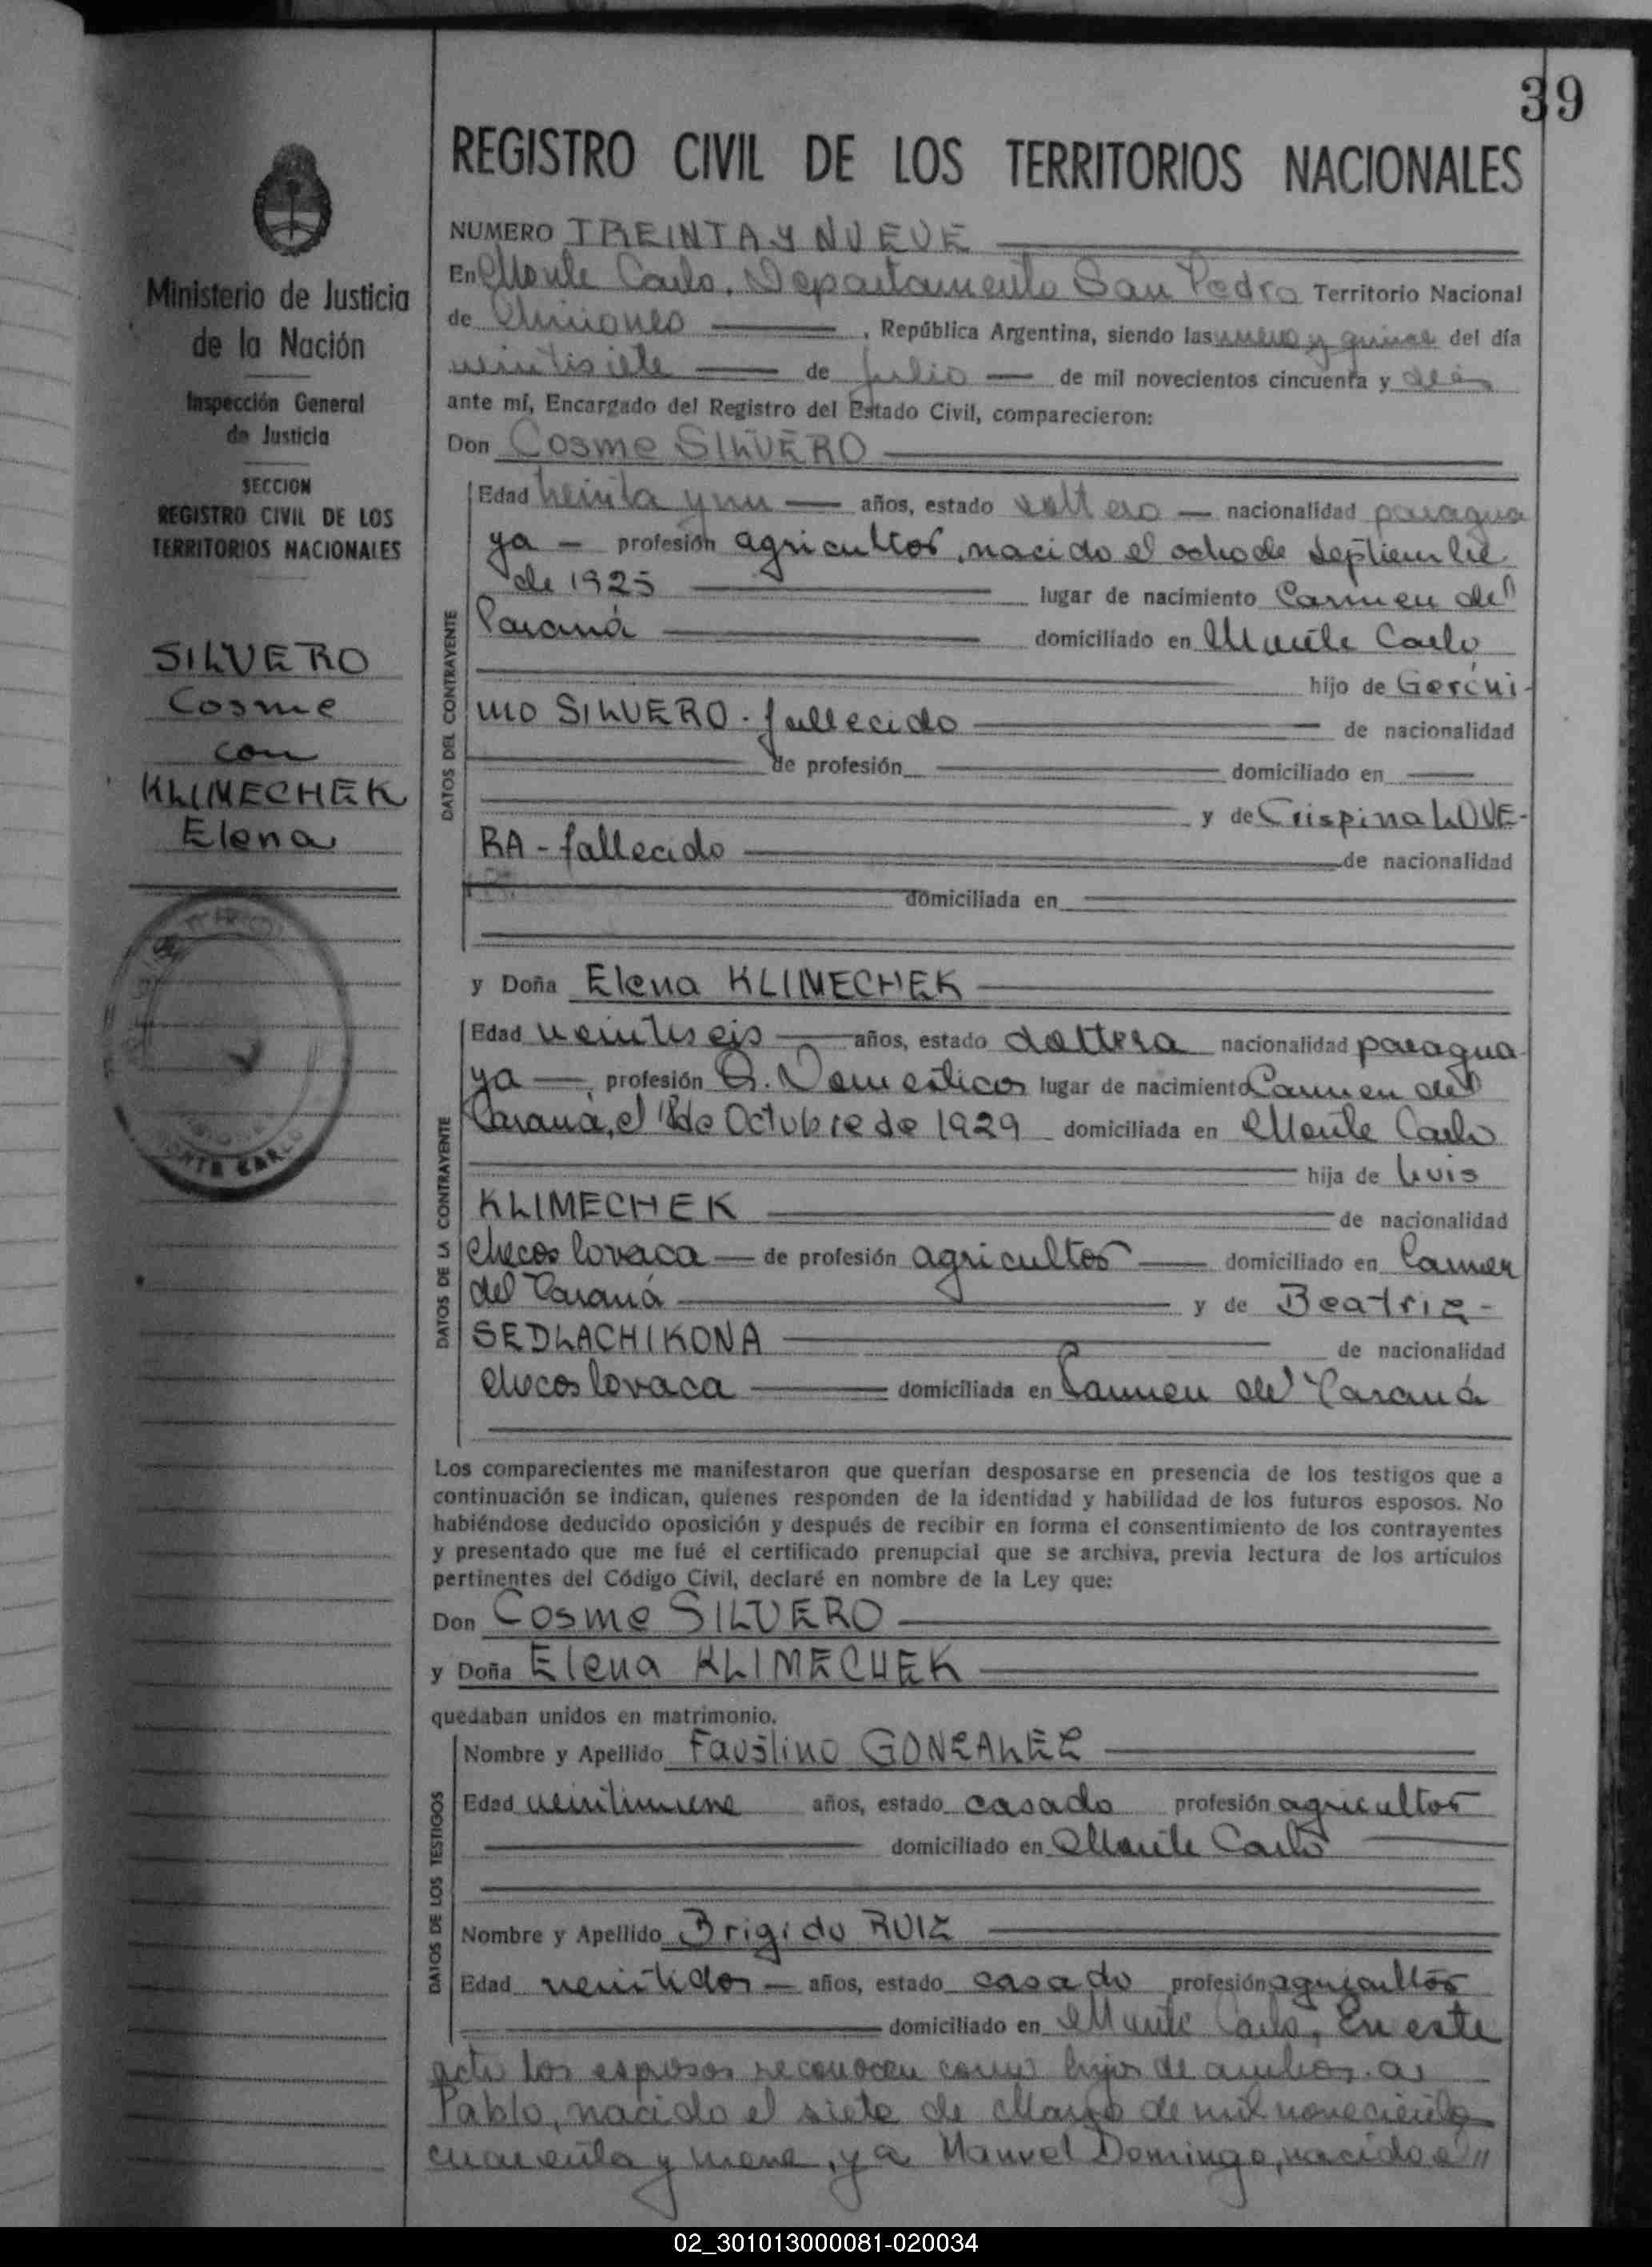 39
REGISTRO CIVIL DE LOS TERRITORIOS NACIONALES
Ministerio de Justicia
de la Nación
Inspección General
de Justicia
SECCION
REGISTRO CIVIL DE LOS
TERRITORIOS NACIONALES
SILVERO
Cosme
con
KLIMECHEK
Elena
MONTE CARLO
NUMERO TREINTA Y NUEVE
En Monte Carlo, Departamento San Pedro Territorio Nacional
de Misiones, República Argentina, siendo las nueve y quince del día
veintisiete de Julio de mil novecientos cincuenta y
ante mí, Encargado del Registro del Estado Civil, comparecieron:
Don Cosme SILVERO
DATOS DEL CONTRAYENTE
Edad treinta y un años, estado soltero nacionalidad paragua
ya - profesión agricultor, nacido el ocho de septiembre
de 1925 lugar de nacimiento Carmen del
Paraná domiciliado en Monte Carlo
hijo de Geróni-
mo SILVERO - fallecido de nacionalidad
de profesión domiciliado en
y de Crispina LOVE-
RA - fallecido de nacionalidad
domiciliada en
y Doña Elena KLIMECHEK
DATOS DE LA CONTRAYENTE
Edad veintiseis años, estado soltera nacionalidad paragua
ya - profesión Q. Domesticos lugar de nacimiento Carmen del
Paraná, el 18 de Octubre de 1929 domiciliada en Monte Carlo
hija de Luis
KLIMECHEK de nacionalidad
checoslovaca - de profesión agricultor domiciliado en Carmen
del Paraná y de Beatriz -
SEDLACHIKONA de nacionalidad
checoslovaca domiciliada en Carmen del Paraná
Los comparecientes me manifestaron que querían desposarse en presencia de los testigos que a
continuación se indican, quienes responden de la identidad y habilidad de los futuros esposos. No
habiéndose deducido oposición y después de recibir en forma el consentimiento de los contrayentes
y presentado que me fué el certificado prenupcial que se archiva, previa lectura de los artículos
pertinentes del Código Civil, declaré en nombre de la Ley que:
Don Cosme SILVERO
y Doña Elena KLIMECHEK
quedaban unidos en matrimonio.
DATOS DE LOS TESTIGOS
Nombre y Apellido Faustino GONZALEZ
Edad veintinueve años, estado casado profesión agricultor
domiciliado en Monte Carlo
Nombre y Apellido Brigido RUIZ
Edad veintidos - años, estado casado profesión agricultor
domiciliado en Monte Carlo. En este
acto los esposos reconocen como hijos de ambos a
Pablo, nacido el siete de Marzo de mil novecientos
cuarenta y nueve, y a Manuel Domingo, nacido e"
02_301013000081-020034